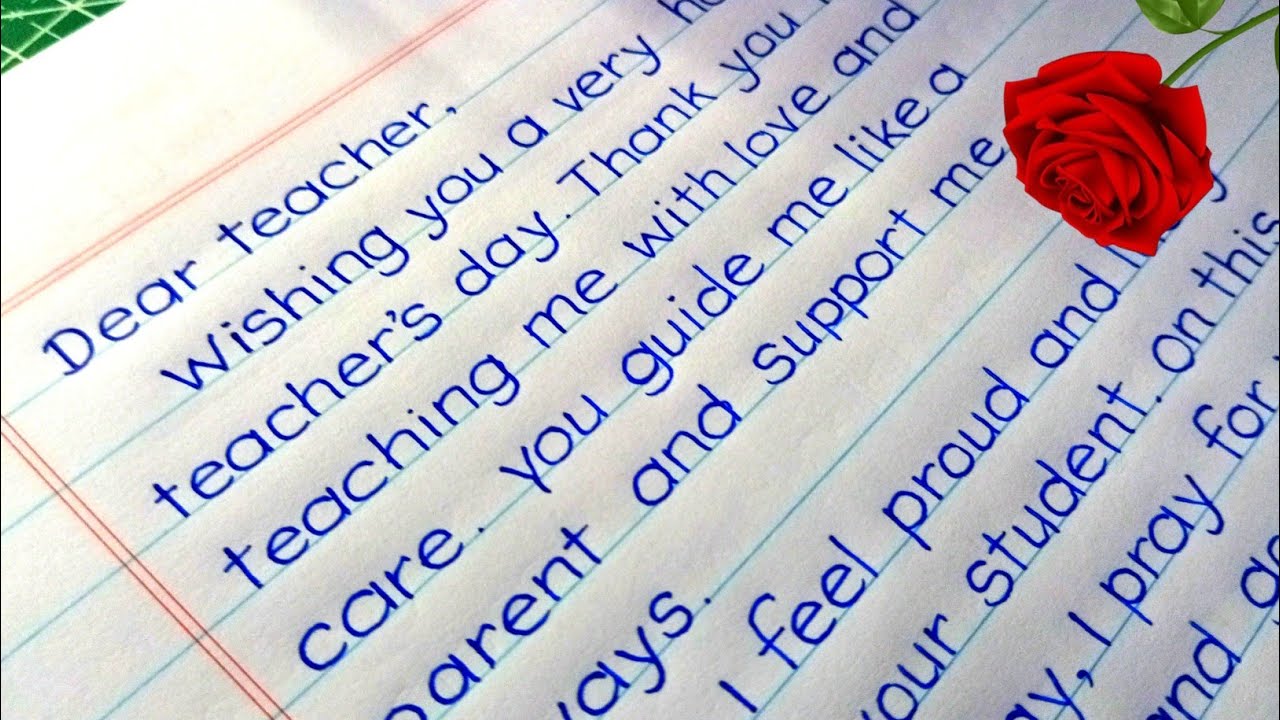 Dear teacher,
Wishing you a very
teacher's day. Thank you
teaching me with love and
care. you guide me like a
parent and support me
ways.
I feel proud and
our student. On this
ay, I pray for
nd